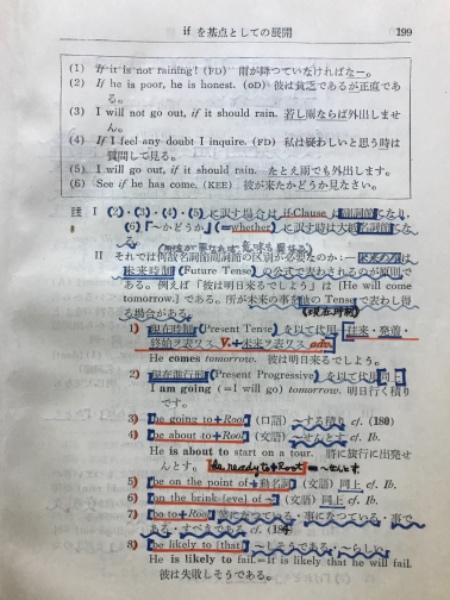 if を基点としての展開 199
(1) If it is not raining! (FD) 雨が降つていなければなー。
(2) If he is poor, he is honest. (OD) 彼は貧乏であるが正直であ
る。
(3) I will not go out, if it should rain. 若し雨ならば外出しませ
ん。
(4) If I feel any doubt I inquire. (FD) 私は疑わしいと思う時は
質問して見る。
(5) I will go out, if it should rain. たとえ雨でも外出します。
(6) See if he has come. (KEE) 彼が来たかどうか見なさい。
I (2)・(3)・(4)・(5) に訳す場合は if-Clause は副詞節になり,
(6)「〜かどうか」(=whether) に訳す時は大抵名詞節にな
る。
II それでは何故名詞節副詞節の区別が必要なのか:—未来の为は
未来時制 (Future Tense) の公式で表わされるのが原則で
ある。例えば「彼は明日来るでしよう」は [He will come
tomorrow.] である。所が未来の事を他の Tense で表わし得
る場合がある。 (現在時制)
1) 現在時制 (Present Tense) を以て代用 往来・発着・
終始ヲ表ワス V.+未来ヲ表ワス adv.
He comes tomorrow. 彼は明日来るでしよう。
2) 現在進行形 (Present Progressive) を以て代用 同上
I am going (=I will go) tomorrow. 明日行く積り
です。
3) be going to+Root (口語) 〜する積り cf. (180)
4) be about to+Root (文語) 〜せんとす cf. Ib.
He is about to start on a tour. 将に旅行に出発せ
んとす。 be ready to+Root =〜せんとす
5) be on the point of+動名詞 (文語) 同上 cf. Ib.
6) on the brink (eve) of 〜 (文語) 同上 cf. Ib.
7) be to+Root 〜になつている・事になつている・事で
ある・すべきである cf.
8) be likely to [that] 〜しそうである・〜らしい
He is likely to fail.=It is likely that he will fail.
彼は失敗しそうである。